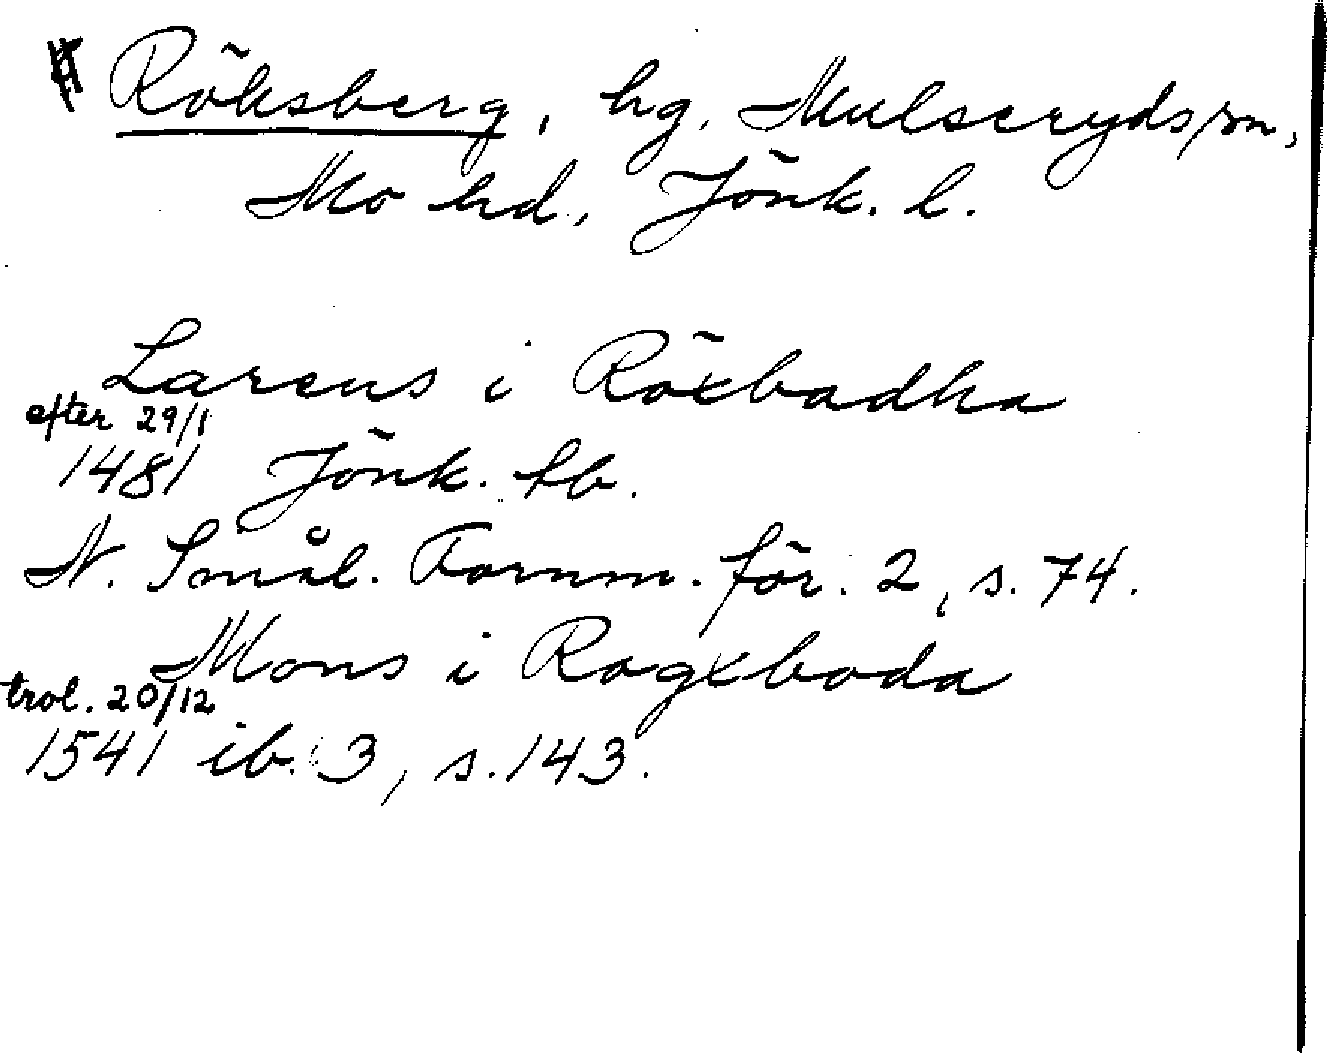 Röksberg, hg, Mulseryds sn,
Mo hd., Jönk. l.
Larens i Röxbadha
efter 29/1
1481 Jönk. tb.
N. Smål. Fornm. för. 2, s. 74.
Mons i Rogxboda
trol. 20/12
1541 ib. 3, s. 143.